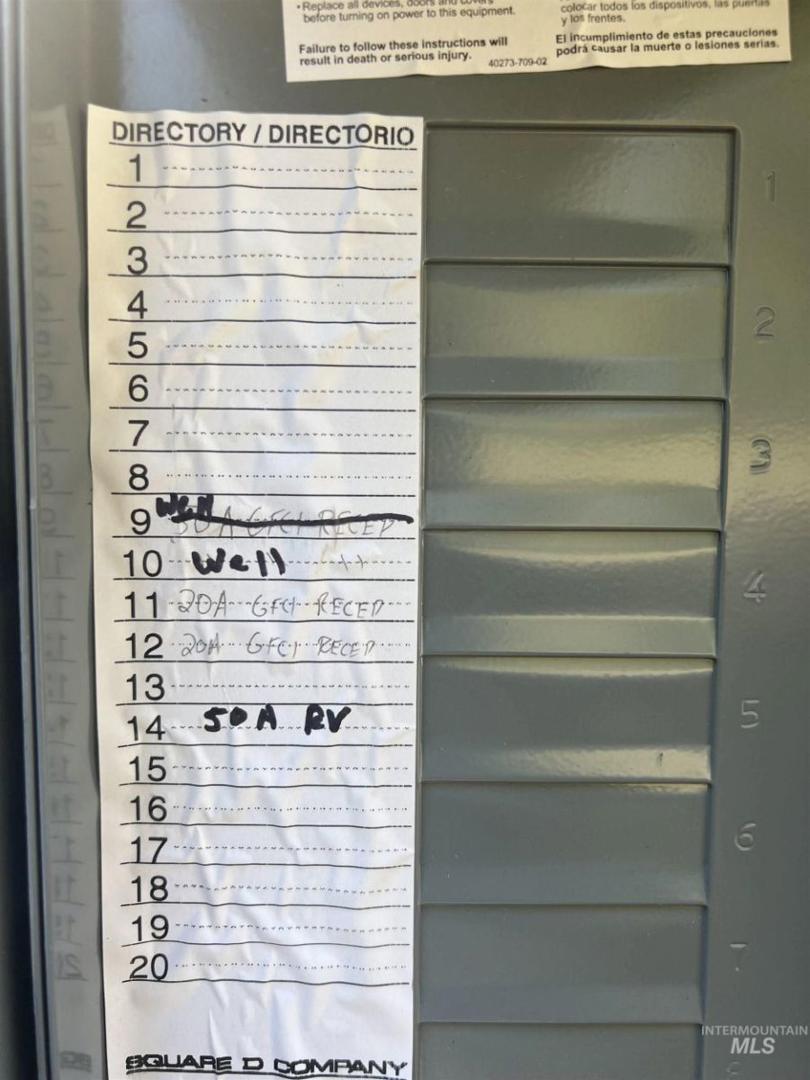 • Replace all devices, doors and covers
before turning on power to this equipment.
Failure to follow these instructions will
result in death or serious injury.
40273-709-02
colocar todos los dispositivos, las puertas
y los frentes.
El incumplimiento de estas precauciones
podrá causar la muerte o lesiones serias.
DIRECTORY / DIRECTORIO
1
2
3
4
5
6
7
8
9 Well 50 A GFCI RECEP
10 Well
11 20A GFCI RECEP
12 20A GFCI RECEP
13
14 50A RV
15
16
17
18
19
20
SQUARE D COMPANY
1
2
3
4
5
6
7
INTERMOUNTAIN
MLS